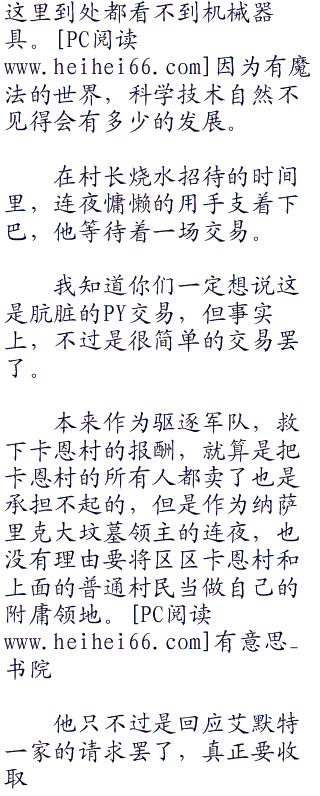 这里到处都看不到机械器
具。[PC阅读
www.heihei66.com]因为有魔
法的世界，科学技术自然不
见得会有多少的发展。
在村长烧水招待的时间
里，连夜慵懒的用手支着下
巴，他等待着一场交易。
我知道你们一定想说这
是肮脏的PY交易，但事实
上，不过是很简单的交易罢
了。
本来作为驱逐军队，救
下卡恩村的报酬，就算是把
卡恩村的所有人都卖了也是
承担不起的，但是作为纳萨
里克大坟墓领主的连夜，也
没有理由要将区区卡恩村和
上面的普通村民当做自己的
附庸领地。[PC阅读
www.heihei66.com]有意思_
书院
他只不过是回应艾默特
一家的请求罢了，真正要收
取